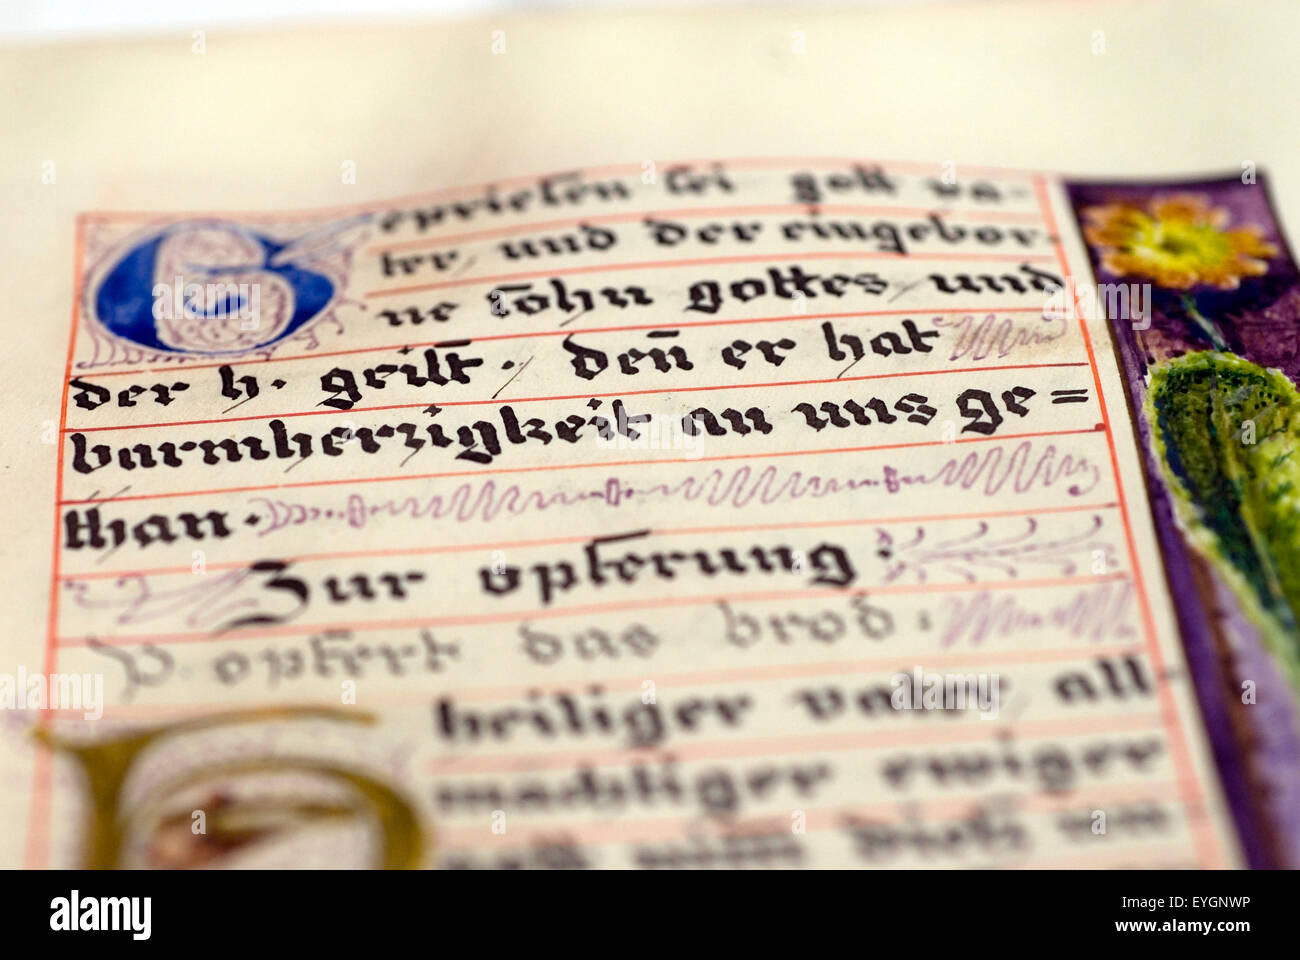 Gepriesen sei gott va-
ter, und der eingebor-
ne sohn gottes, und
der h. geist. den̄ er hat
barmherzigkeit an uns ge=
than.
Zur opferung:
P. opfert das brod:
heiliger vater, all-
mächtiger ewiger
gott nim̄ dieß un
alamy
Image ID: EYGNWP
www.alamy.com